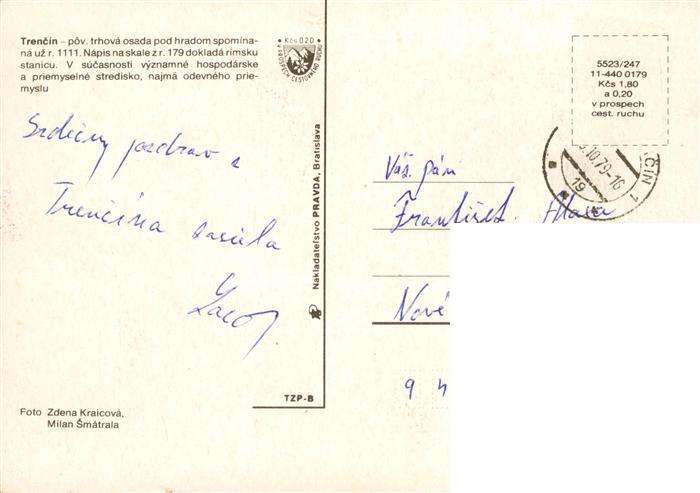 Trenčín – pôv. trhová osada pod hradom spomína-
ná už r. 1111. Nápis na skale z r. 179 dokladá rímsku
stanicu. V súčasnosti významné hospodárske
a priemyselné stredisko, najmä odevného prie-
myslu
Kčs 0,20
V PROSPECH CESTOVNÉHO RUCHU
5523/247
11-440 0179
Kčs 1,80
a 0,20
v prospech
cest. ruchu
10.79-16
ČÍN 1
19
Srdečný pozdrav z
Trenčína zasiela
Nakladateľstvo PRAVDA, Bratislava
Váž. pán
František
Nové
9
TZP-B
Foto Zdena Kraicová,
Milan Šmátrala